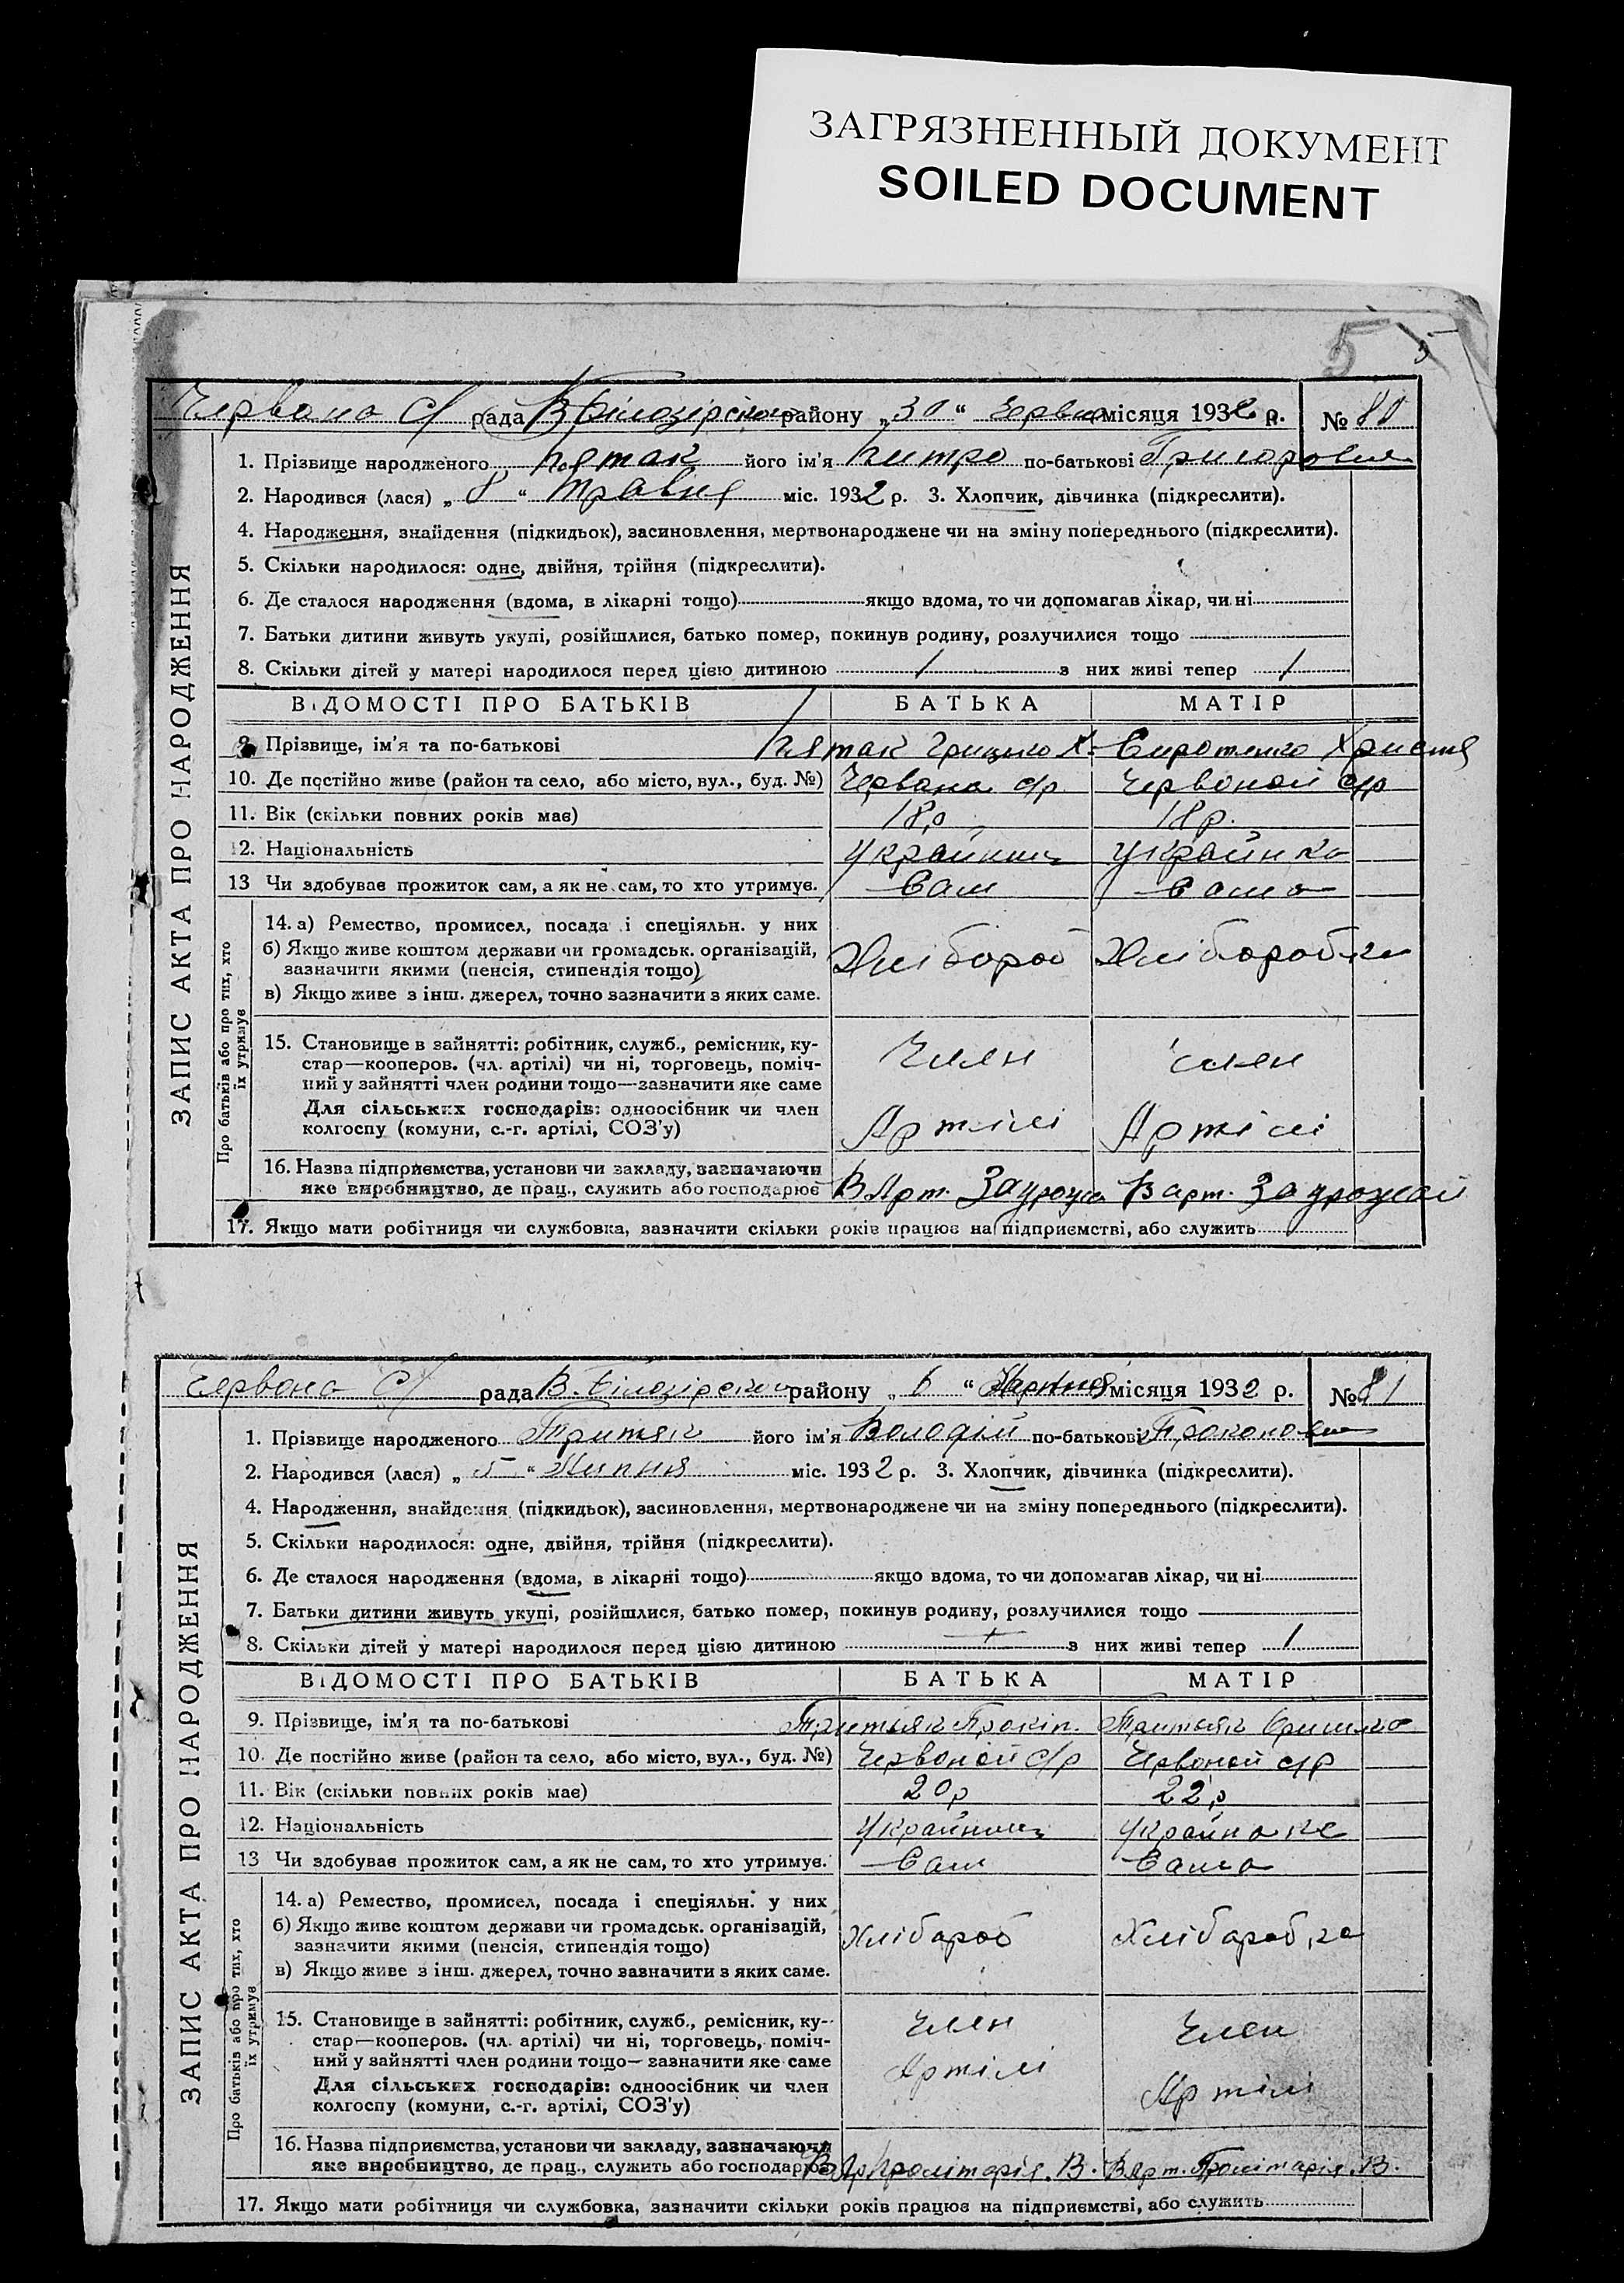 ЗАГРЯЗНЕННЫЙ ДОКУМЕНТ
SOILED DOCUMENT
5
Червона С/ рада В Білозірского району „30“ Червня місяця 1932 р. № 80
ЗАПИС АКТА ПРО НАРОДЖЕННЯ
1. Прізвище народженого Пятак його ім'я Питро по-батькові Григорович
2. Народився (лася) „8“ Травня міс. 1932 р. 3. Хлопчик, дівчинка (підкреслити).
4. Народження, знайдення (підкидьок), засиновлення, мертвонароджене чи на зміну попереднього (підкреслити).
5. Скільки народилося: одне, двійня, трійня (підкреслити).
6. Де сталося народження (вдома, в лікарні тощо) якщо вдома, то чи допомагав лікар, чи ні
7. Батьки дитини живуть укупі, розійшлися, батько помер, покинув родину, розлучилися тощо
8. Скільки дітей у матері народилося перед цією дитиною / з них живі тепер /
ВІДОМОСТІ ПРО БАТЬКІВ БАТЬКА МАТІР
9. Прізвище, ім'я та по-батькові Пятак Грицько Х. Сиротенко Христя
10. Де постійно живе (район та село, або місто, вул., буд. №) Червона с/р. Червоной с/р
11. Вік (скільки повних років має) 18р 18р.
12. Національність Українець Українка
13 Чи здобував прожиток сам, а як не сам, то хто утримує. Сам Сама
Про батьків або про тих, хто їх утримує
14. а) Ремество, промисел, посада і спеціяльн. у них
б) Якщо живе коштом держави чи громадськ. організацій, зазначити якими (пенсія, стипендія тощо) Хлібороб Хліборобка
в) Якщо живе з інш. джерел, точно зазначити з яких саме.
15. Становище в зайнятті: робітник, служб., ремісник, ку-
стар—кооперов. (чл. артілі) чи ні, торговець, поміч- Член член
ний у зайнятті член родини тощо—зазначити яке саме
Для сільських господарів: одноосібник чи член
колгоспу (комуни, с.-г. артілі, СОЗ'у) Артілі Артілі
16. Назва підприємства, установи чи закладу, зазначаючи
яке виробництво, де прац., служить або господарює В Арт. За урожа В арт. За урожай
17. Якщо мати робітниця чи службовка, зазначити скільки років працює на підприємстві, або служить
Червона С/ рада В. Білозірского району „6“ місяця 1932 р. № 81
ЗАПИС АКТА ПРО НАРОДЖЕННЯ
1. Прізвище народженого Притяк його ім'я Володій по-батькові Прокопович
2. Народився (лася) „5“ Липня міс. 1932 р. 3. Хлопчик, дівчинка (підкреслити).
4. Народження, знайдення (підкидьок), засиновлення, мертвонароджене чи на зміну попереднього (підкреслити).
5. Скільки народилося: одне, двійня, трійня (підкреслити).
6. Де сталося народження (вдома, в лікарні тощо) якщо вдома, то чи допомагав лікар, чи ні
7. Батьки дитини живуть укупі, розійшлися, батько помер, покинув родину, розлучилися тощо
8. Скільки дітей у матері народилося перед цією дитиною з них живі тепер /
ВІДОМОСТІ ПРО БАТЬКІВ БАТЬКА МАТІР
9. Прізвище, ім'я та по-батькові Притьяк Прокіп. Притьяк
10. Де постійно живе (район та село, або місто, вул., буд. №) Червоной с/р Червоной с/р
11. Вік (скільки повних років має) 20р 22р
12. Національність Українець
13 Чи здобував прожиток сам, а як не сам, то хто утримує. Сам Сама
Про батьків або про тих, хто їх утримує
14. а) Ремество, промисел, посада і спеціяльн. у них
б) Якщо живе коштом держави чи громадськ. організацій, зазначити якими (пенсія, стипендія тощо) Хлібароб Хлібаробка
в) Якщо живе з інш. джерел, точно зазначити з яких саме.
15. Становище в зайнятті: робітник, служб., ремісник, ку-
стар—кооперов. (чл. артілі) чи ні, торговець, поміч- Член Член
ний у зайнятті член родини тощо—зазначити яке саме
Для сільських господарів: одноосібник чи член
колгоспу (комуни, с.-г. артілі, СОЗ'у) Артілі Артілі
16. Назва підприємства, установи чи закладу, зазначаючи
яке виробництво, де прац., служить або господарює В Ар Пролітарія. В. В Арт. Пролітарія. В.
17. Якщо мати робітниця чи службовка, зазначити скільки років працює на підприємстві, або служить